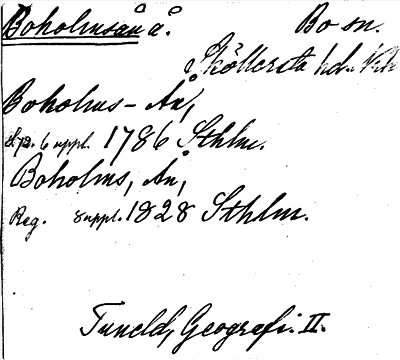 Boholmsån å. Bo sn.
Sköllersta hd. Nrk
Boholms-Ån,
s. 73. 6 uppl. 1786 Sthlm.
Boholms, Ån,
Reg. 8 uppl. 1828 Sthlm.
Tuneld, Geografi. II.